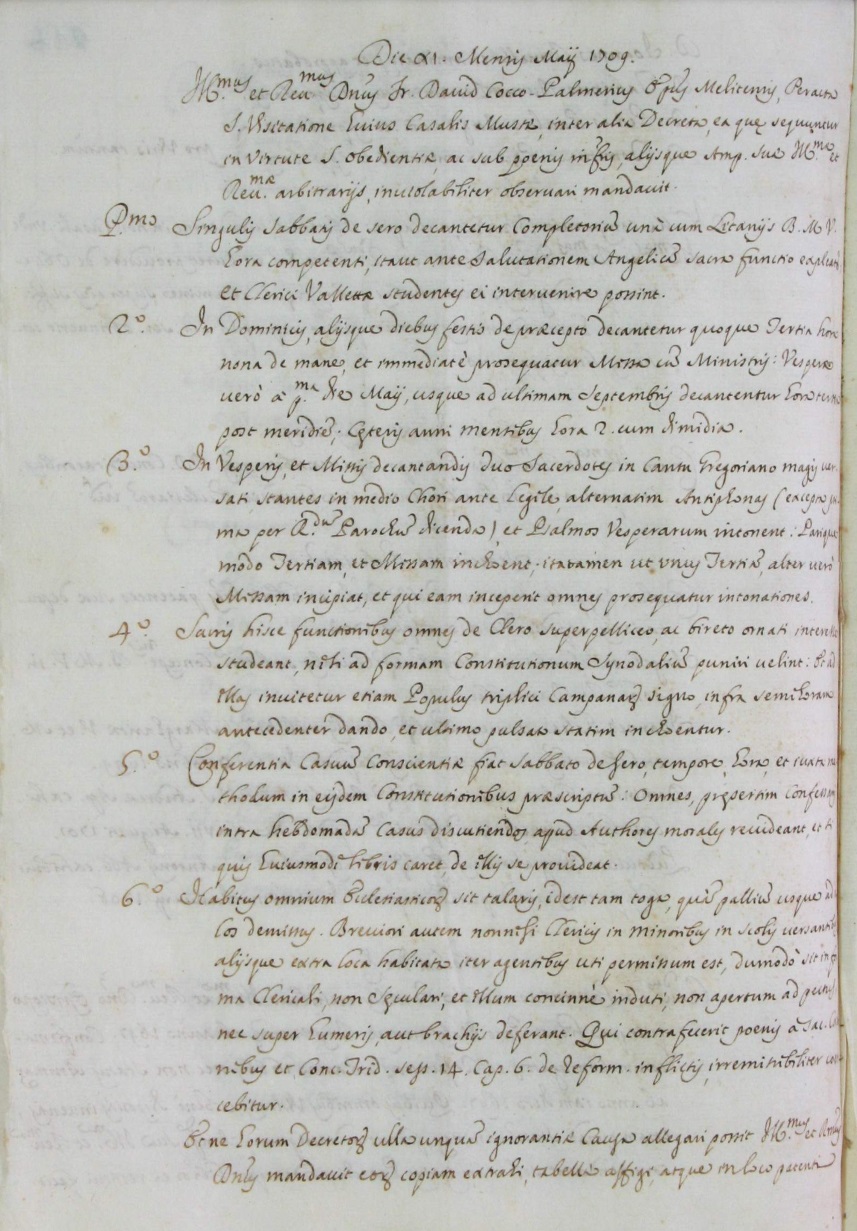 Die XI. Mensis Maij 1709.
Ill.mus et Reu.mus Dnus Fr. David Cocco-Palmerius Epus Melitensis, Peracta
S. Visitatione huius Casalis Mustæ, inter alia Decreta, ea quę sequuntur
in virtute S. obedientiæ, ac sub pœnis infris, alijsque Amp. Suæ Ill.mæ et
Reu.mæ arbitrarijs, inviolabiliter observari mandavit.
P.mo Singulis Sabbatis de sero decantetur Completorium unà cum Litanijs B. M. V.
hora competenti, itaut ante Salutationem Angelicã sacra functio expleatur
et Clerici Vallettæ studentes ei intervenire possint.
2.o In Dominicis, alijsque diebus festis de præcepto decantetur quoque Tertia hora
nona de mane, et immediatè prosequatur Missa cũ Ministris: Vesperæ
verò à p.ma die Maij, usque ad ultimam Septembris decantentur hora tertia
post meridiẽ; Cęteris anni mensibus hora 2. cum dimidia.
3.o In Vesperis, et Missis decantandis duo Sacerdotes in Cantu Gregoriano magis ver-
sati stantes in medio Chori ante legile, alternatim Antiphonas (excepta pri-
ma per R.dum Parochũ dicenda) et Psalmos Vesperarum intonent: Parique
modo Tertiam, et Missam inchoent; ita tamen ut unus Tertiã, alter verò
Missam incipiat, et qui eam inceperit omnes prosequatur intonationes.
4.o Sacris hisce functionibus omnes de Clero superpelliceo, ac bireto ornati interesse
studeant, nisi ad formam Constitutionum Synodaliũ puniri velint: Et ad
illas invitetur etiam Populus triplici Campanarũ signo, infra semihoram
antecedenter dando, et ultimo pulsato statim inchoentur.
5.o Conferentia Casuũ Conscientiæ fiat Sabbato de sero, tempore, hora, et iuxta me-
thodum in eisdem Constitutionibus præscriptis: Omnes, pręsertim Confessarij
intra hebdomadã Casus discutiendos apud Authores morales revideant, et si
quis huiusmodi libris caret, de illis se provideat.
6.o Habitus omnium Ecclesiasticorũ sit talaris, idest tam toga, quã pallium usque ad ta-
los demissus. Breviori autem nonnisi Clericis in minoribus in scolis versantibus
alijsque extra loca habitata iter agentibus uti permissum est, dumodò sit in for-
ma Clericali, non sęculari, et illum concinnè induti, non apertum ad pectus
nec super humeris, aut brachijs deferant. Qui contrafecerit pœnis à Sac. Cano-
nibus et Conc. Trid. sess. 14. Cap. 6. de reform. inflictis, irremissibiliter coer-
cebitur.
Et ne horum Decretorũ ulla unquã ignorantiæ Causa allegari possit Ill.mus et R.mus
Dnus mandavit eorũ copiam extrahi, tabellæ affigi, atque in loco patenti